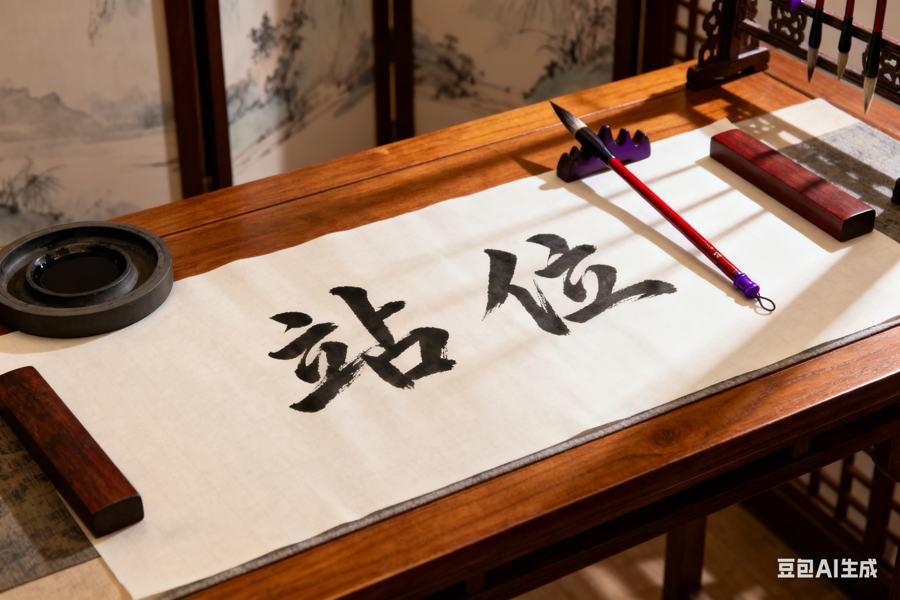 站位
豆包AI生成